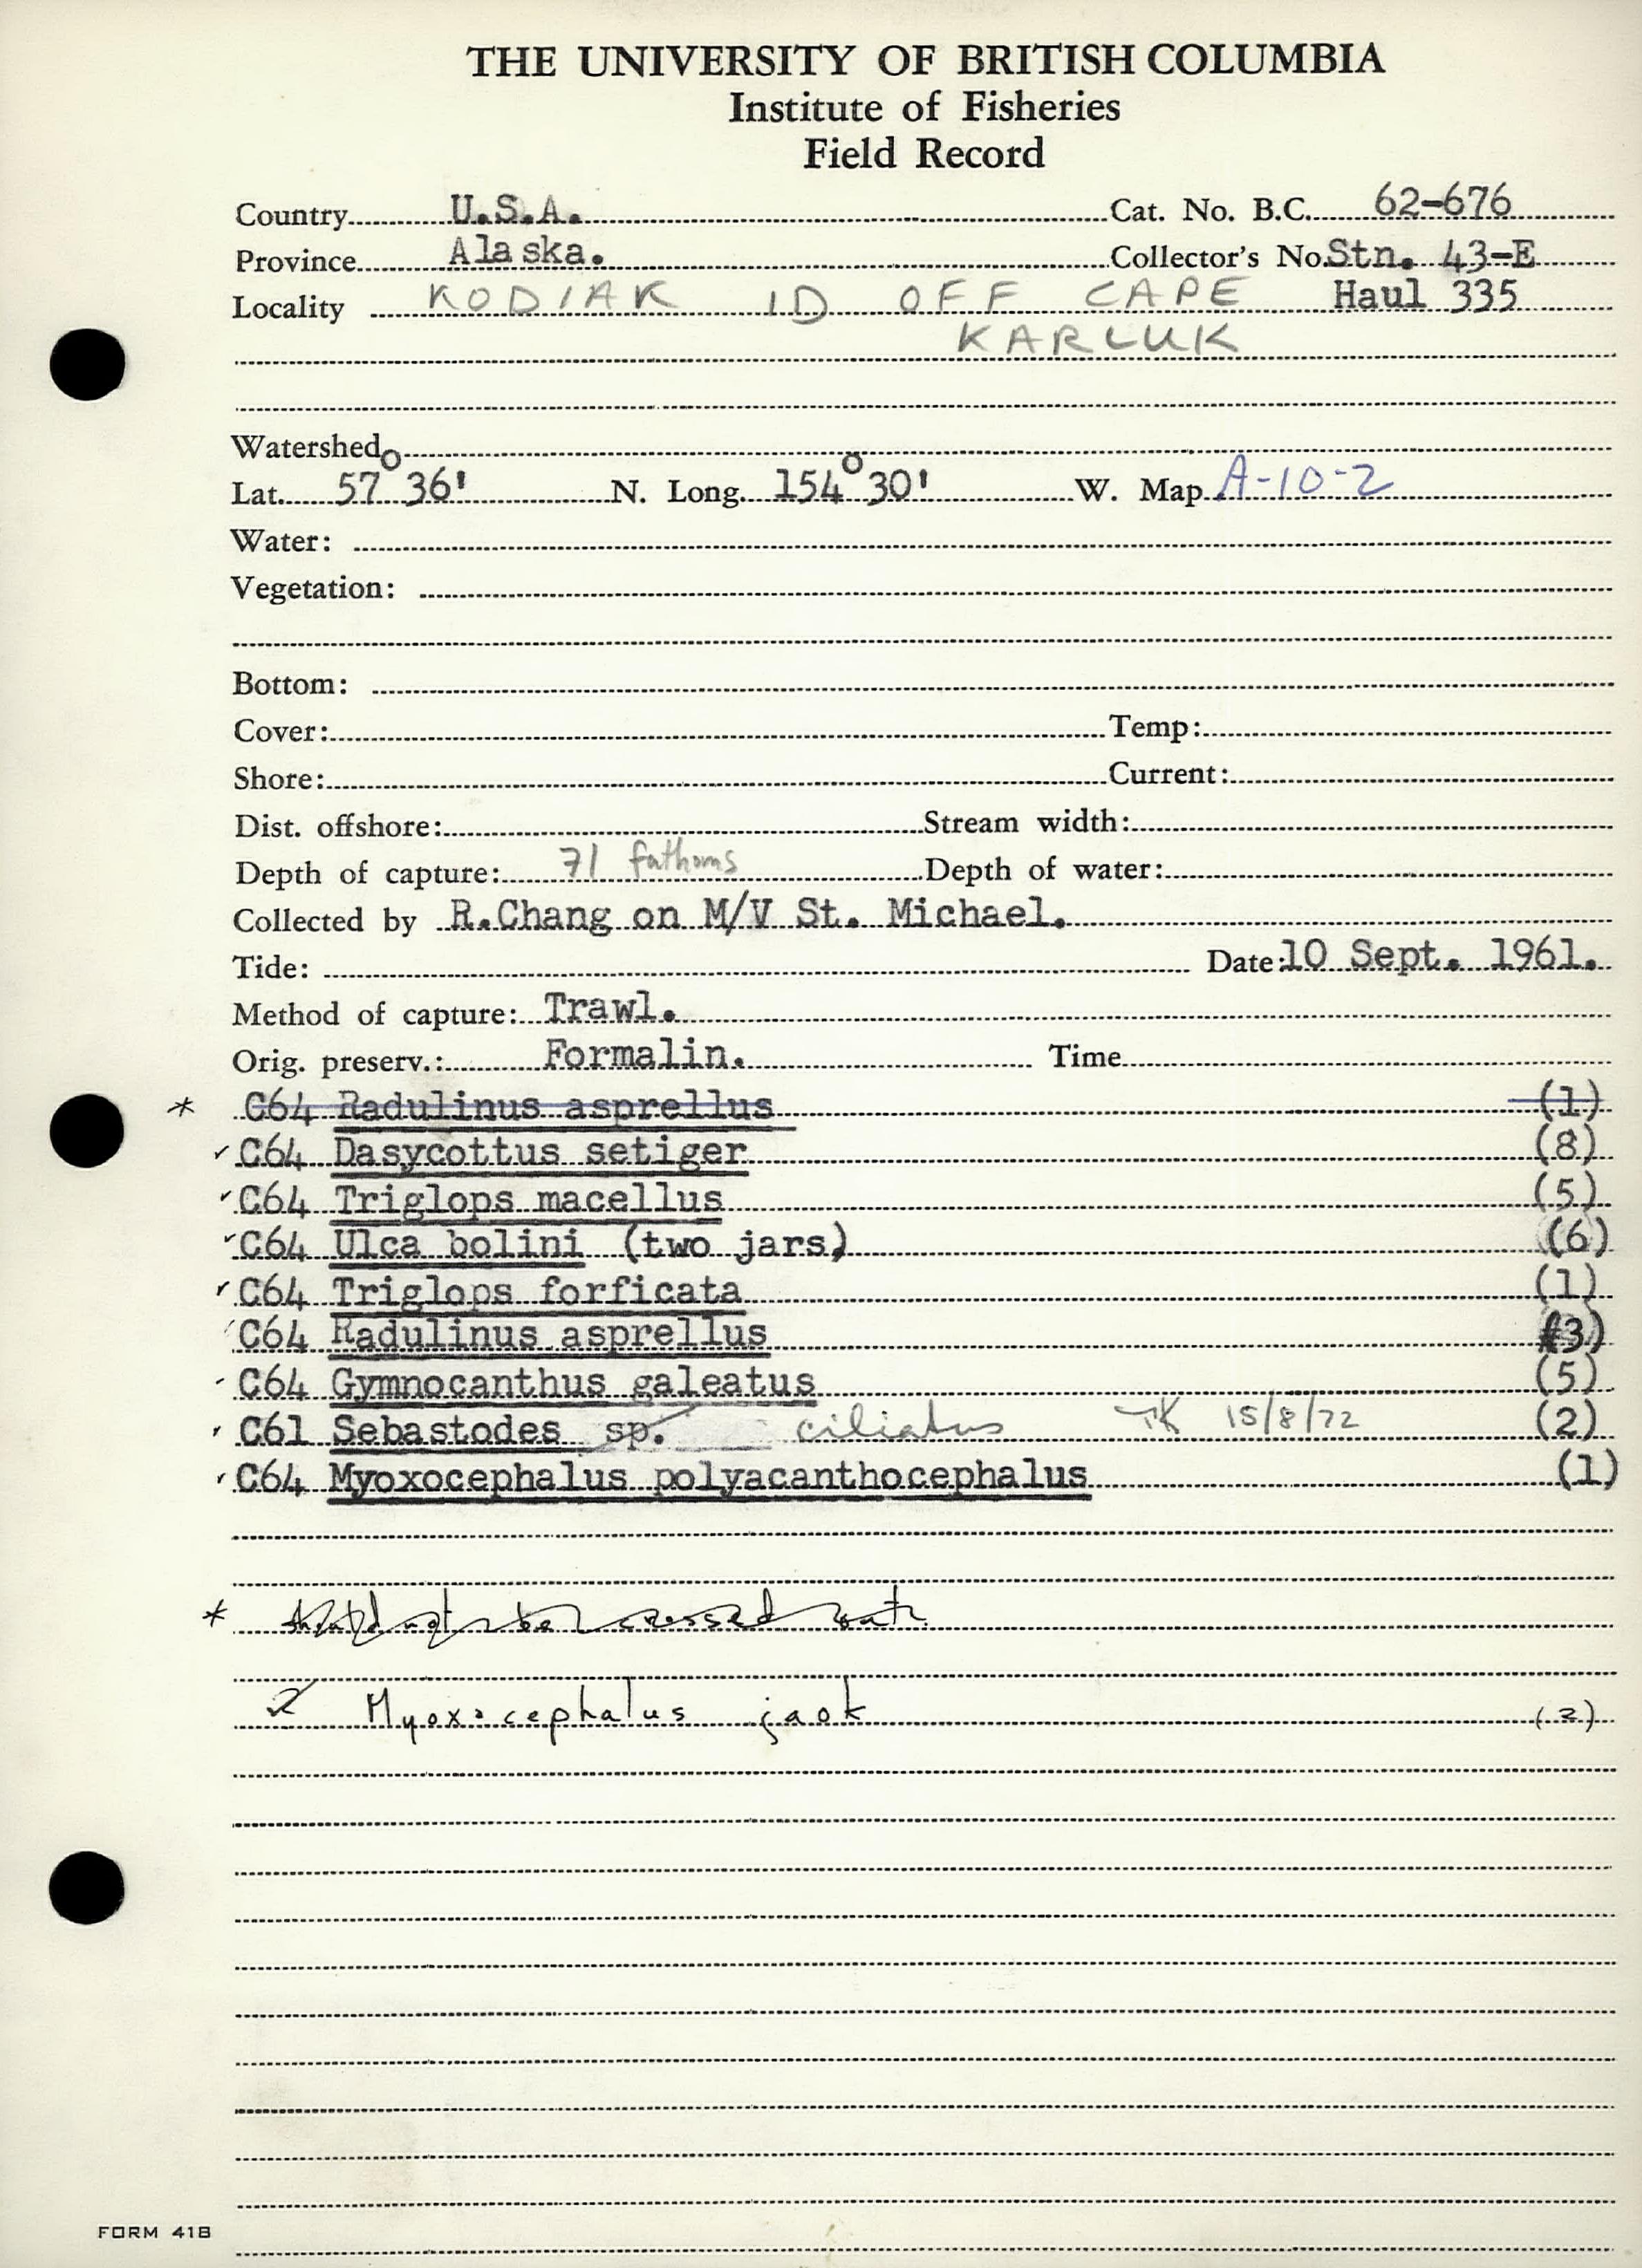 THE UNIVERSITY OF BRITISH COLUMBIA
Institute of Fisheries
Field Record
Country U.S.A. Cat. No. B.C. 62-676
Province Alaska. Collector's No. Stn. 43-E
Locality KODIAK ID OFF CAPE Haul 335
KARLUK
Watershed
Lat. 57° 36' N. Long. 154° 30' W. Map A-10-2
Water:
Vegetation:
Bottom:
Cover: Temp:
Shore: Current:
Dist. offshore: Stream width:
Depth of capture: 71 fathoms Depth of water:
Collected by R.Chang on M/V St. Michael.
Tide: Date: 10 Sept. 1961.
Method of capture: Trawl.
Orig. preserv.: Formalin. Time
* C64 Radulinus asprellus (1)
✓ C64 Dasycottus setiger (8)
✓ C64 Triglops macellus (5)
✓ C64 Ulca bolini (two jars) (6)
✓ C64 Triglops forficata (1)
✓ C64 Radulinus asprellus (3)
✓ C64 Gymnocanthus galeatus (5)
✓ C61 Sebastodes sp. ciliatus TK 15/8/72 (2)
✓ C64 Myoxocephalus polyacanthocephalus (1)
* should not be crossed out
✓ Myoxocephalus jaok (2)
FORM 41B